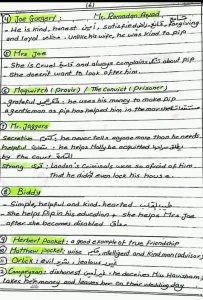 (2)
① Joe Gargery: Mr. Ramadan Ayoad
- He is kind, honest, satisfied, forgiving
and loyal. Unlike his wife, he was kind to pip
② Mrs Joe
- She is Cruel قاسية and always complains about pip
She doesn't want to look after him.
③ Magwitch (Provis) (The Convict) (Prisoner)
- grateful: he uses his money to make pip
gentleman as pip has helped him in the
④ Mr. Jaggers
Secretive: he never tells anyone more than he needs
helpful: he helps Molly be acquitted
by the court
Strong قوي: London's Criminals were so afraid of him
That he didn't even lock his house.
⑤ Biddy
- Simple, helpful and kind-hearted طيبة القلب
- She helps Pip in his education + She helps Mrs Joe
after she becomes disabled
⑥ Herbert Pocket: a good example of true friendship
⑦ Matthew pocket: wise, intelligent and kind man (advisor)
⑧ Orlick: evil شرير, jealous
⑨ Compeyson: dishonest: he deceives Miss Havisham;
takes her money and leaves her on their wedding day